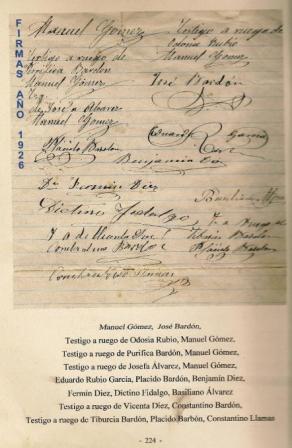 FIRMAS AÑO 1926
Manuel Gómez
Testigo a ruego de
Odosia Rubio
Manuel Gómez
Testigo a ruego de
Purifica Bardon
Manuel Gómez
José Bardón
de Josefa Alvarez
Manuel Gomez
Eduardo R Garcia
Plácido Bardon
Benjamin Diez
Fermin Diez
Basiliano
Dictino Fidalgo
Constantino Bardon
Plácido Bardon
Manuel Gómez, José Bardón,
Testigo a ruego de Odosia Rubio, Manuel Gómez,
Testigo a ruego de Purifica Bardón, Manuel Gómez,
Testigo a ruego de Josefa Álvarez, Manuel Gómez,
Eduardo Rubio García, Placido Bardón, Benjamín Diez,
Fermin Diez, Dictino Fidalgo, Basiliano Álvarez
Testigo a ruego de Vicenta Diez, Constantino Bardón,
Testigo a ruego de Tiburcia Bardón, Placido Barbón, Constantino Llamas
- 224 -